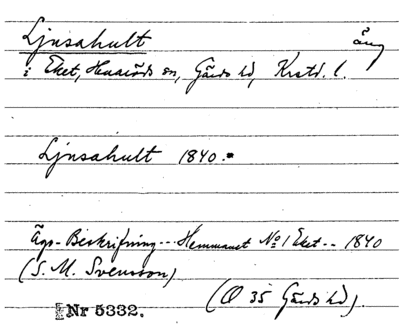 Ljusahult äng
i Eket, Huaröds sn, Gärds hd, Krstd. l.
Ljusahult 1840.
Äga-Beskrifning --- Hemmanet No 1 Eket -- 1840
(S. M. Svensson)
(Q 35 Gärds hd).
Nr 5332.